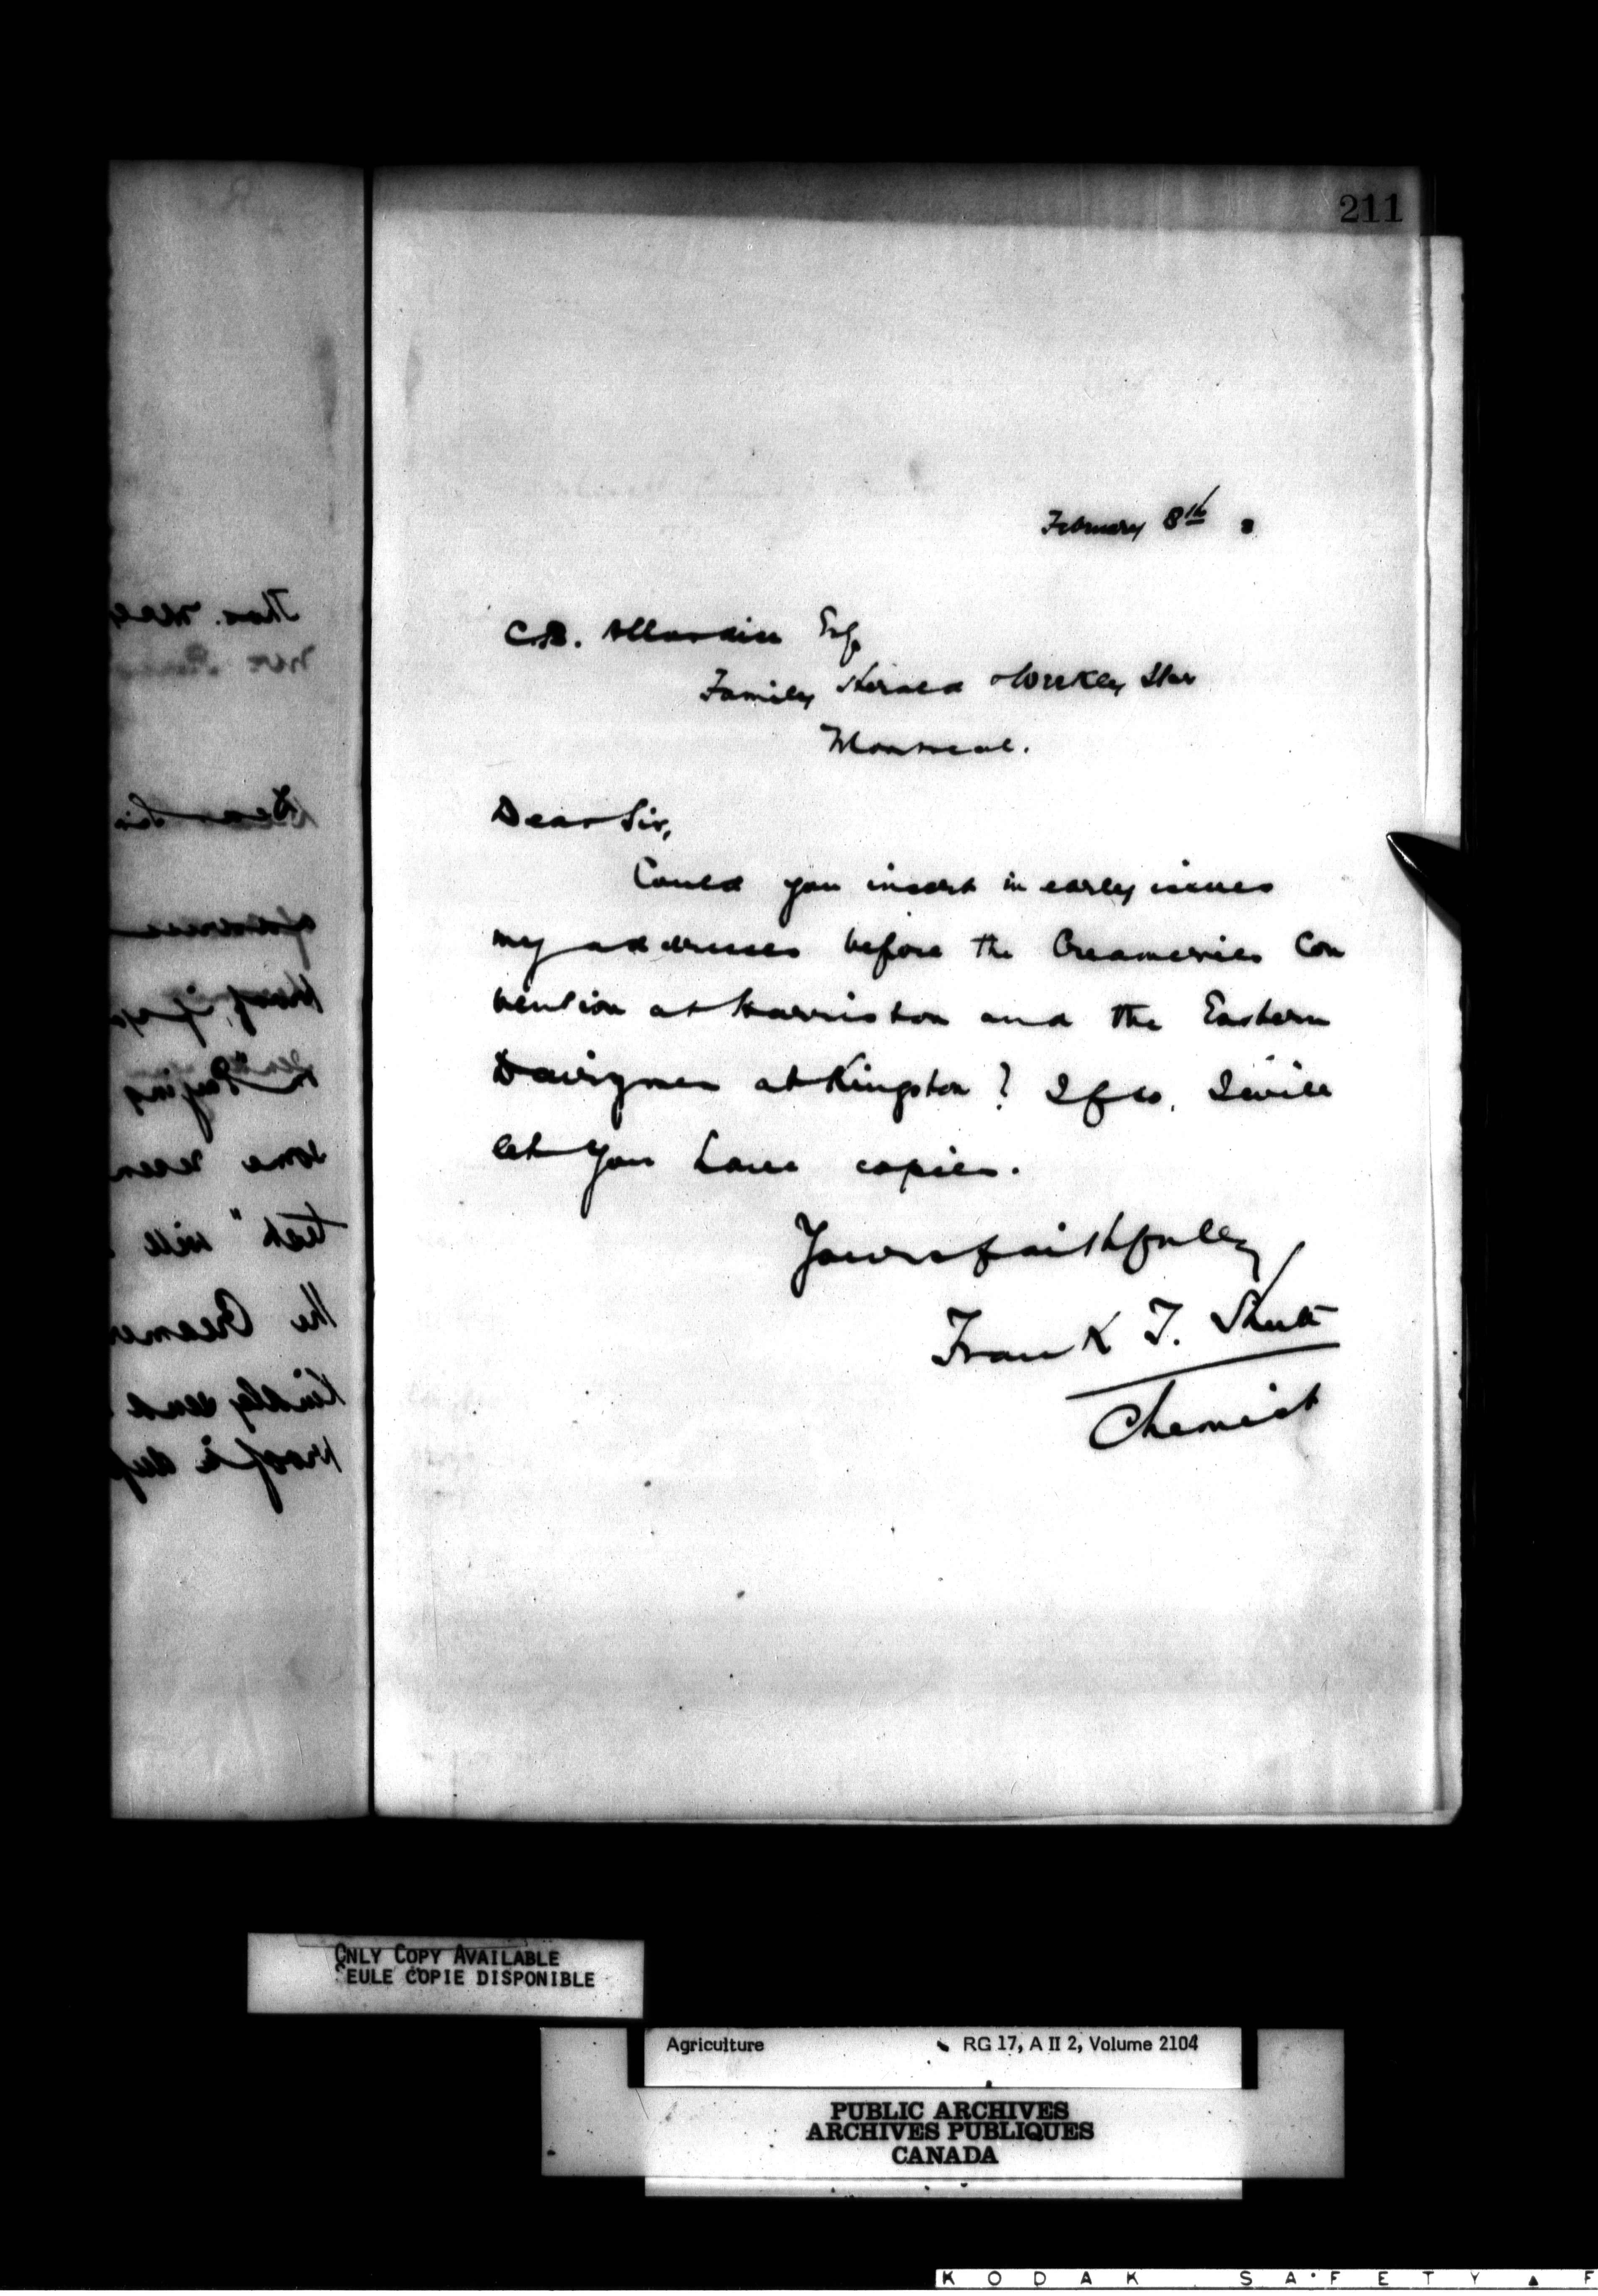 211
February 8th 3
C.B. Allardice Esq
Family Herald & Weekly Star
Montreal.
Dear Sir,
Could you insert in early issues
my addresses before the Creameries Con
vention at Harriston and the Eastern
Dairymen at Kingston? If so, I will
let you have copies.
Yours faithfully
Frank T. Shutt
Chemist
Thos.
Dear Sir
proof, if you
"Paying
some recen
test" will
the Creamer
Kindly send
proof is
ONLY COPY AVAILABLE
SEULE COPIE DISPONIBLE
Agriculture RG 17, A II 2, Volume 2104
PUBLIC ARCHIVES
ARCHIVES PUBLIQUES
CANADA
KODAK SAFETY ▲ F